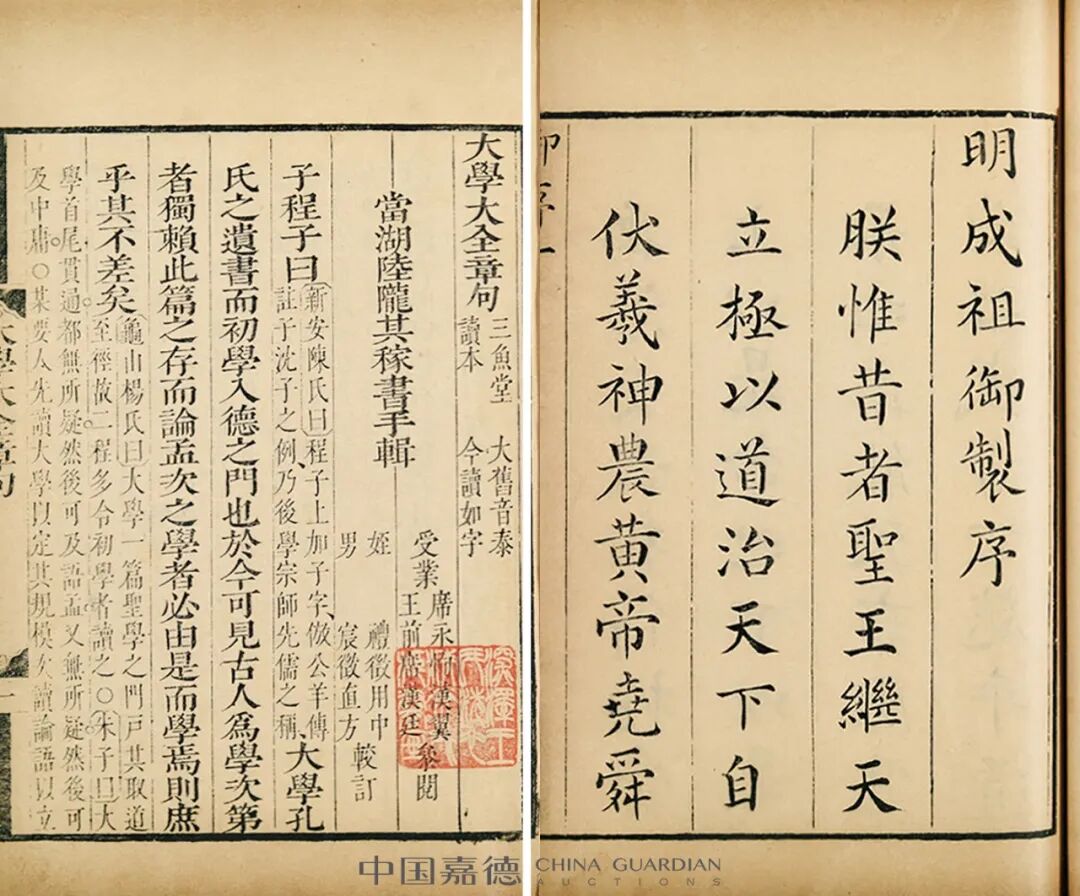 明成祖御製序
朕惟昔者聖王繼天
立極以道治天下自
伏羲神農黃帝堯舜
御序一
大學大全章句 三魚堂讀本 大舊音泰今讀如字
當湖陸隴其稼書手輯
受業 席永恂漢翼 王前席漢廷 參閱
姪 禮徵用中
男 宸徵直方 較訂
子程子曰 新安陳氏曰程子上加子字倣公羊傳
註子沈子之例乃後學宗師先儒之稱 大學孔
氏之遺書而初學入德之門也於今可見古人為學次第
者獨賴此篇之存而論孟次之學者必由是而學焉則庶
乎其不差矣 龜山楊氏曰大學一篇聖學之門戶其取道
至徑故二程多令初學者讀之○朱子曰大
學首尾貫通都無所疑然後可及語孟又無所疑然後可
及中庸○某要人先讀大學以定其規模次讀論語以立
大學大全章句
一
中国嘉德 CHINA GUARDIAN
AUCTIONS